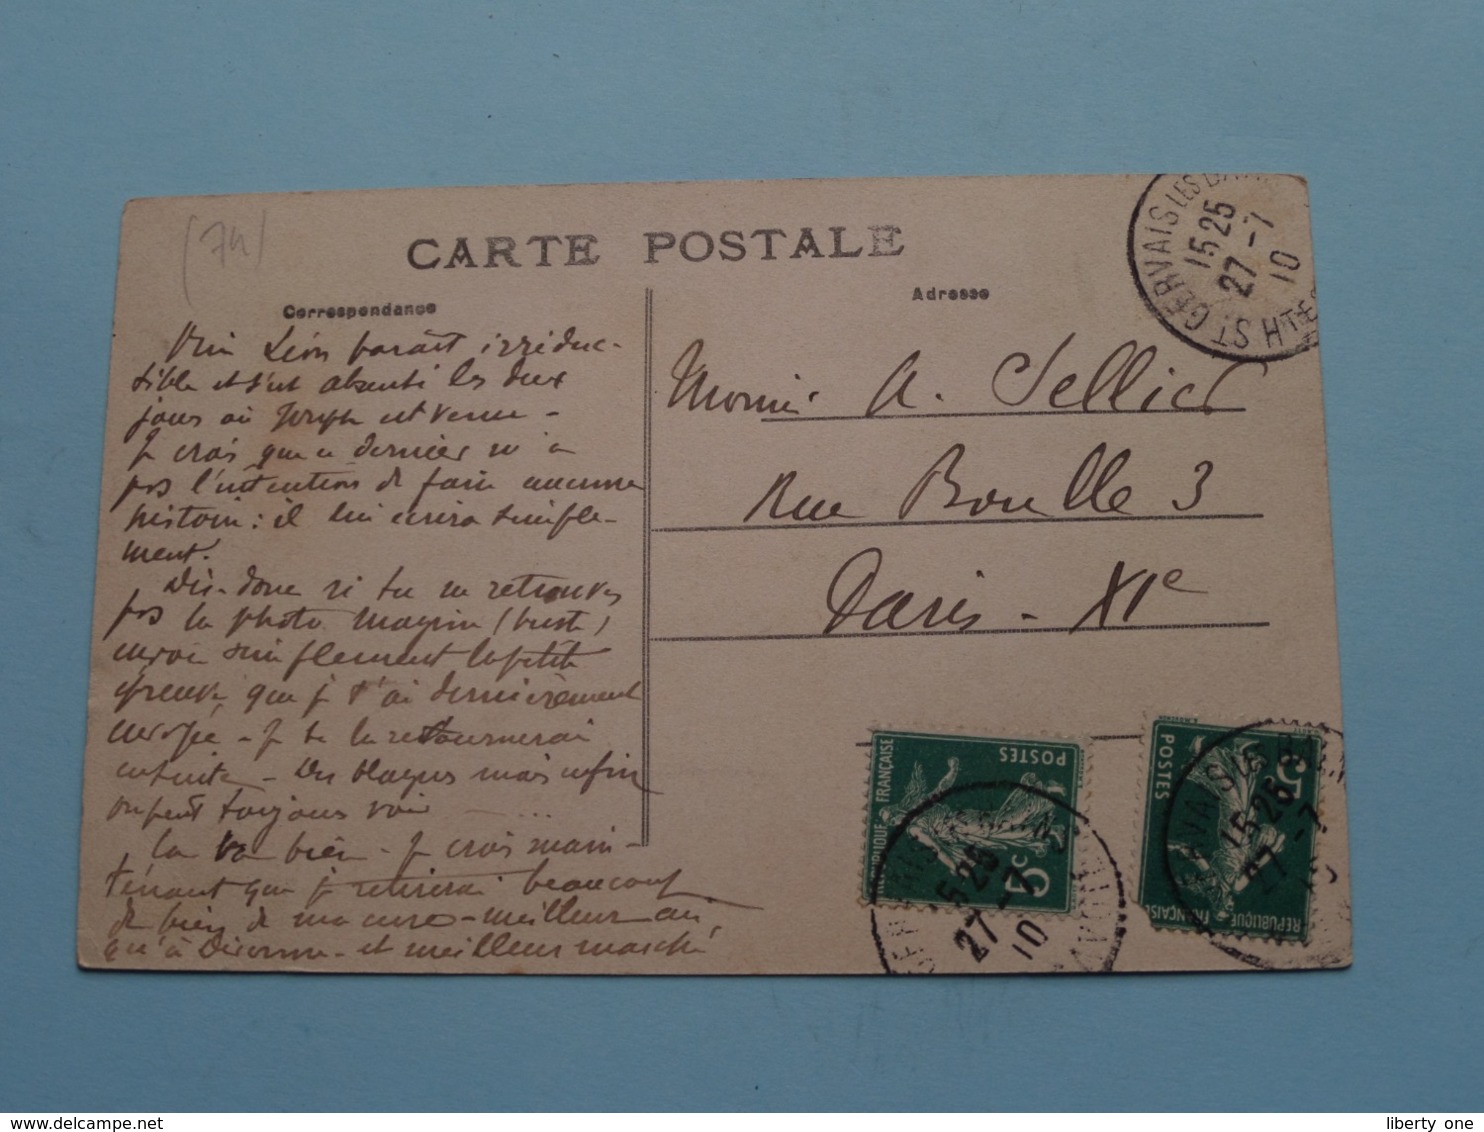 (74)
CARTE POSTALE
Correspondance
Adresse
Léon paraît irréduc-
tible et s'est absenté les deux
jours où Joseph est venu -
Je crois que ce dernier n'a
pas l'intention de faire aucune
histoire : il lui écrira simple-
ment.
Dis-donc si tu ne retrouves
pas la photo Magnin (buste)
envoie simplement la petite
épreuve que je t'ai dernièrement
envoyée - Je te la retournerai
ensuite - mais enfin
on peut toujours voir
Ça va bien - Je crois main-
tenant que je retirerai beaucoup
de bien de ma cure - meilleur air
qu'à et meilleur marché
A. Sellier
Rue Boulle 3
Paris - XIe
ST GERVAIS LES BAINS
15 25
27 - 7
10
HTE
RÉPUBLIQUE FRANÇAISE
POSTES
5c
15 25
27 - 7
10
RÉPUBLIQUE FRANÇAISE
POSTES
5c
15 25
27 - 7
liberty one